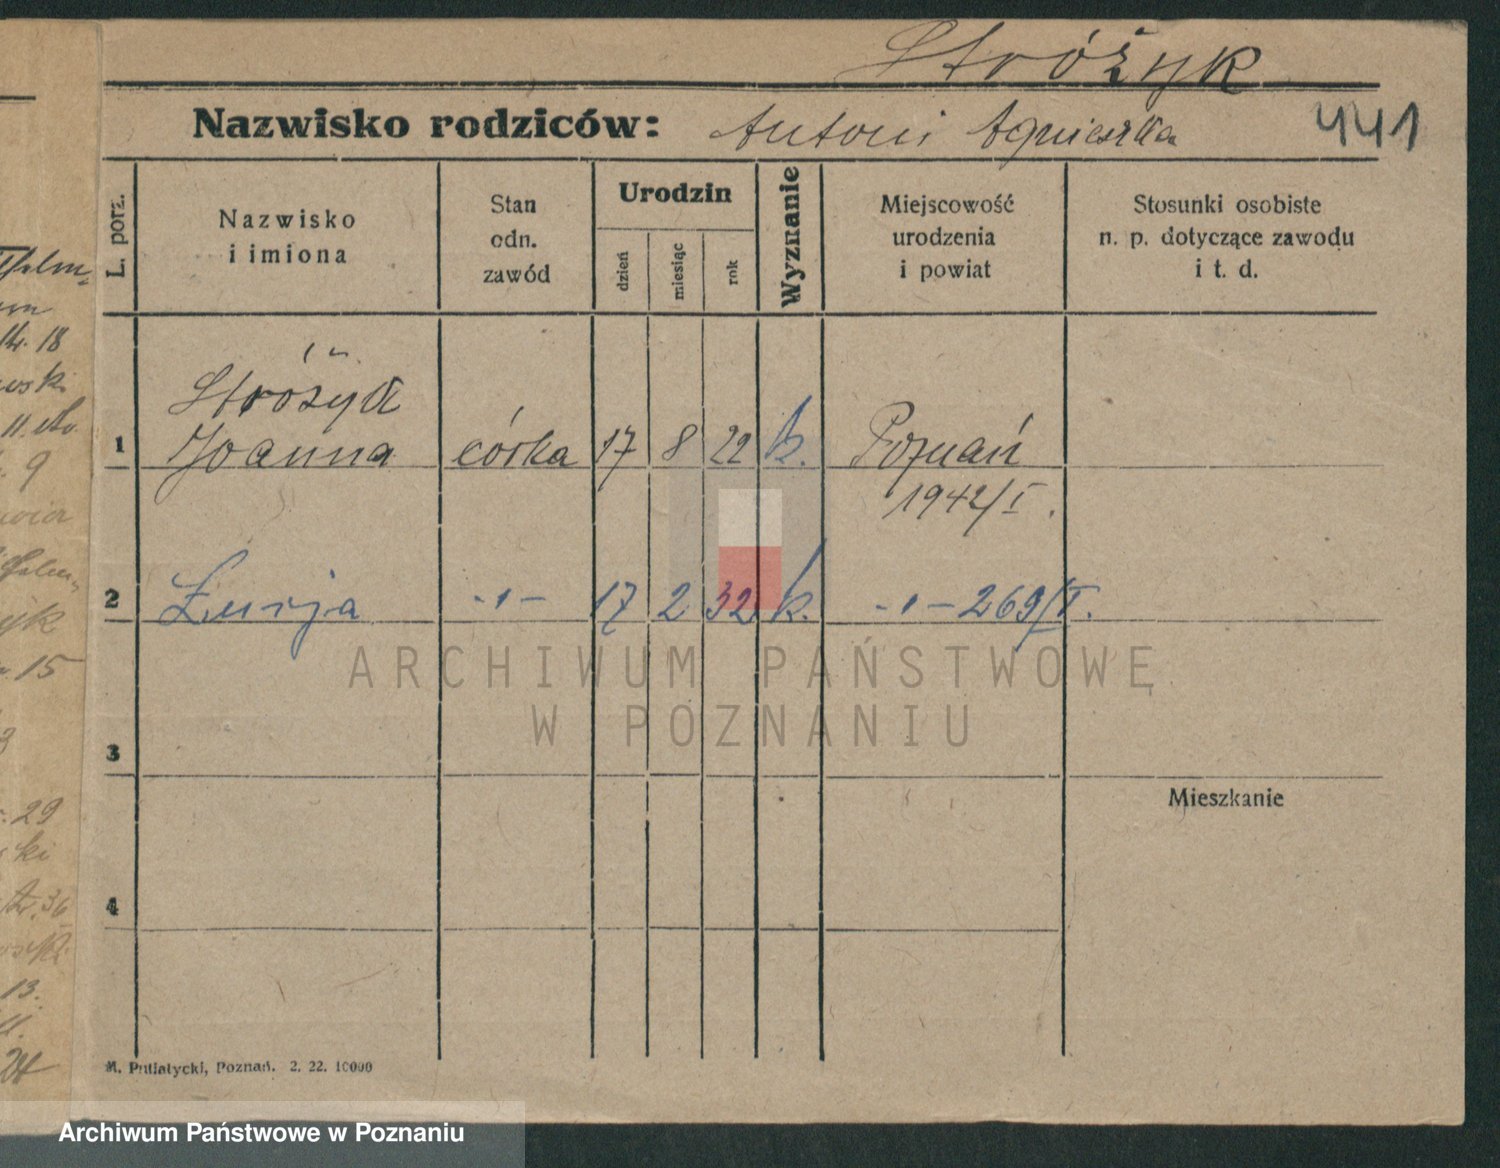 Stróżyk
Nazwisko rodziców: Antoni Agnieszka 441
L. porz.
Nazwisko
i imiona
Stan
odn.
zawód
Urodzin
dzień
miesiąc
rok
Wyznanie
Miejscowość
urodzenia
i powiat
Stosunki osobiste
n. p. dotyczące zawodu
i t. d.
Stróżyk
1 Joanna córka 17 8 22 k. Poznań
1942/I.
2 Łucja -"- 17 2 32 k. -"- 269/I.
ARCHIWUM PAŃSTWOWE
W POZNANIU
3
Mieszkanie
4
M. Putiatycki, Poznań. 2. 22. 10000
Archiwum Państwowe w Poznaniu
18
11.
9
15
29
ki
36
13.